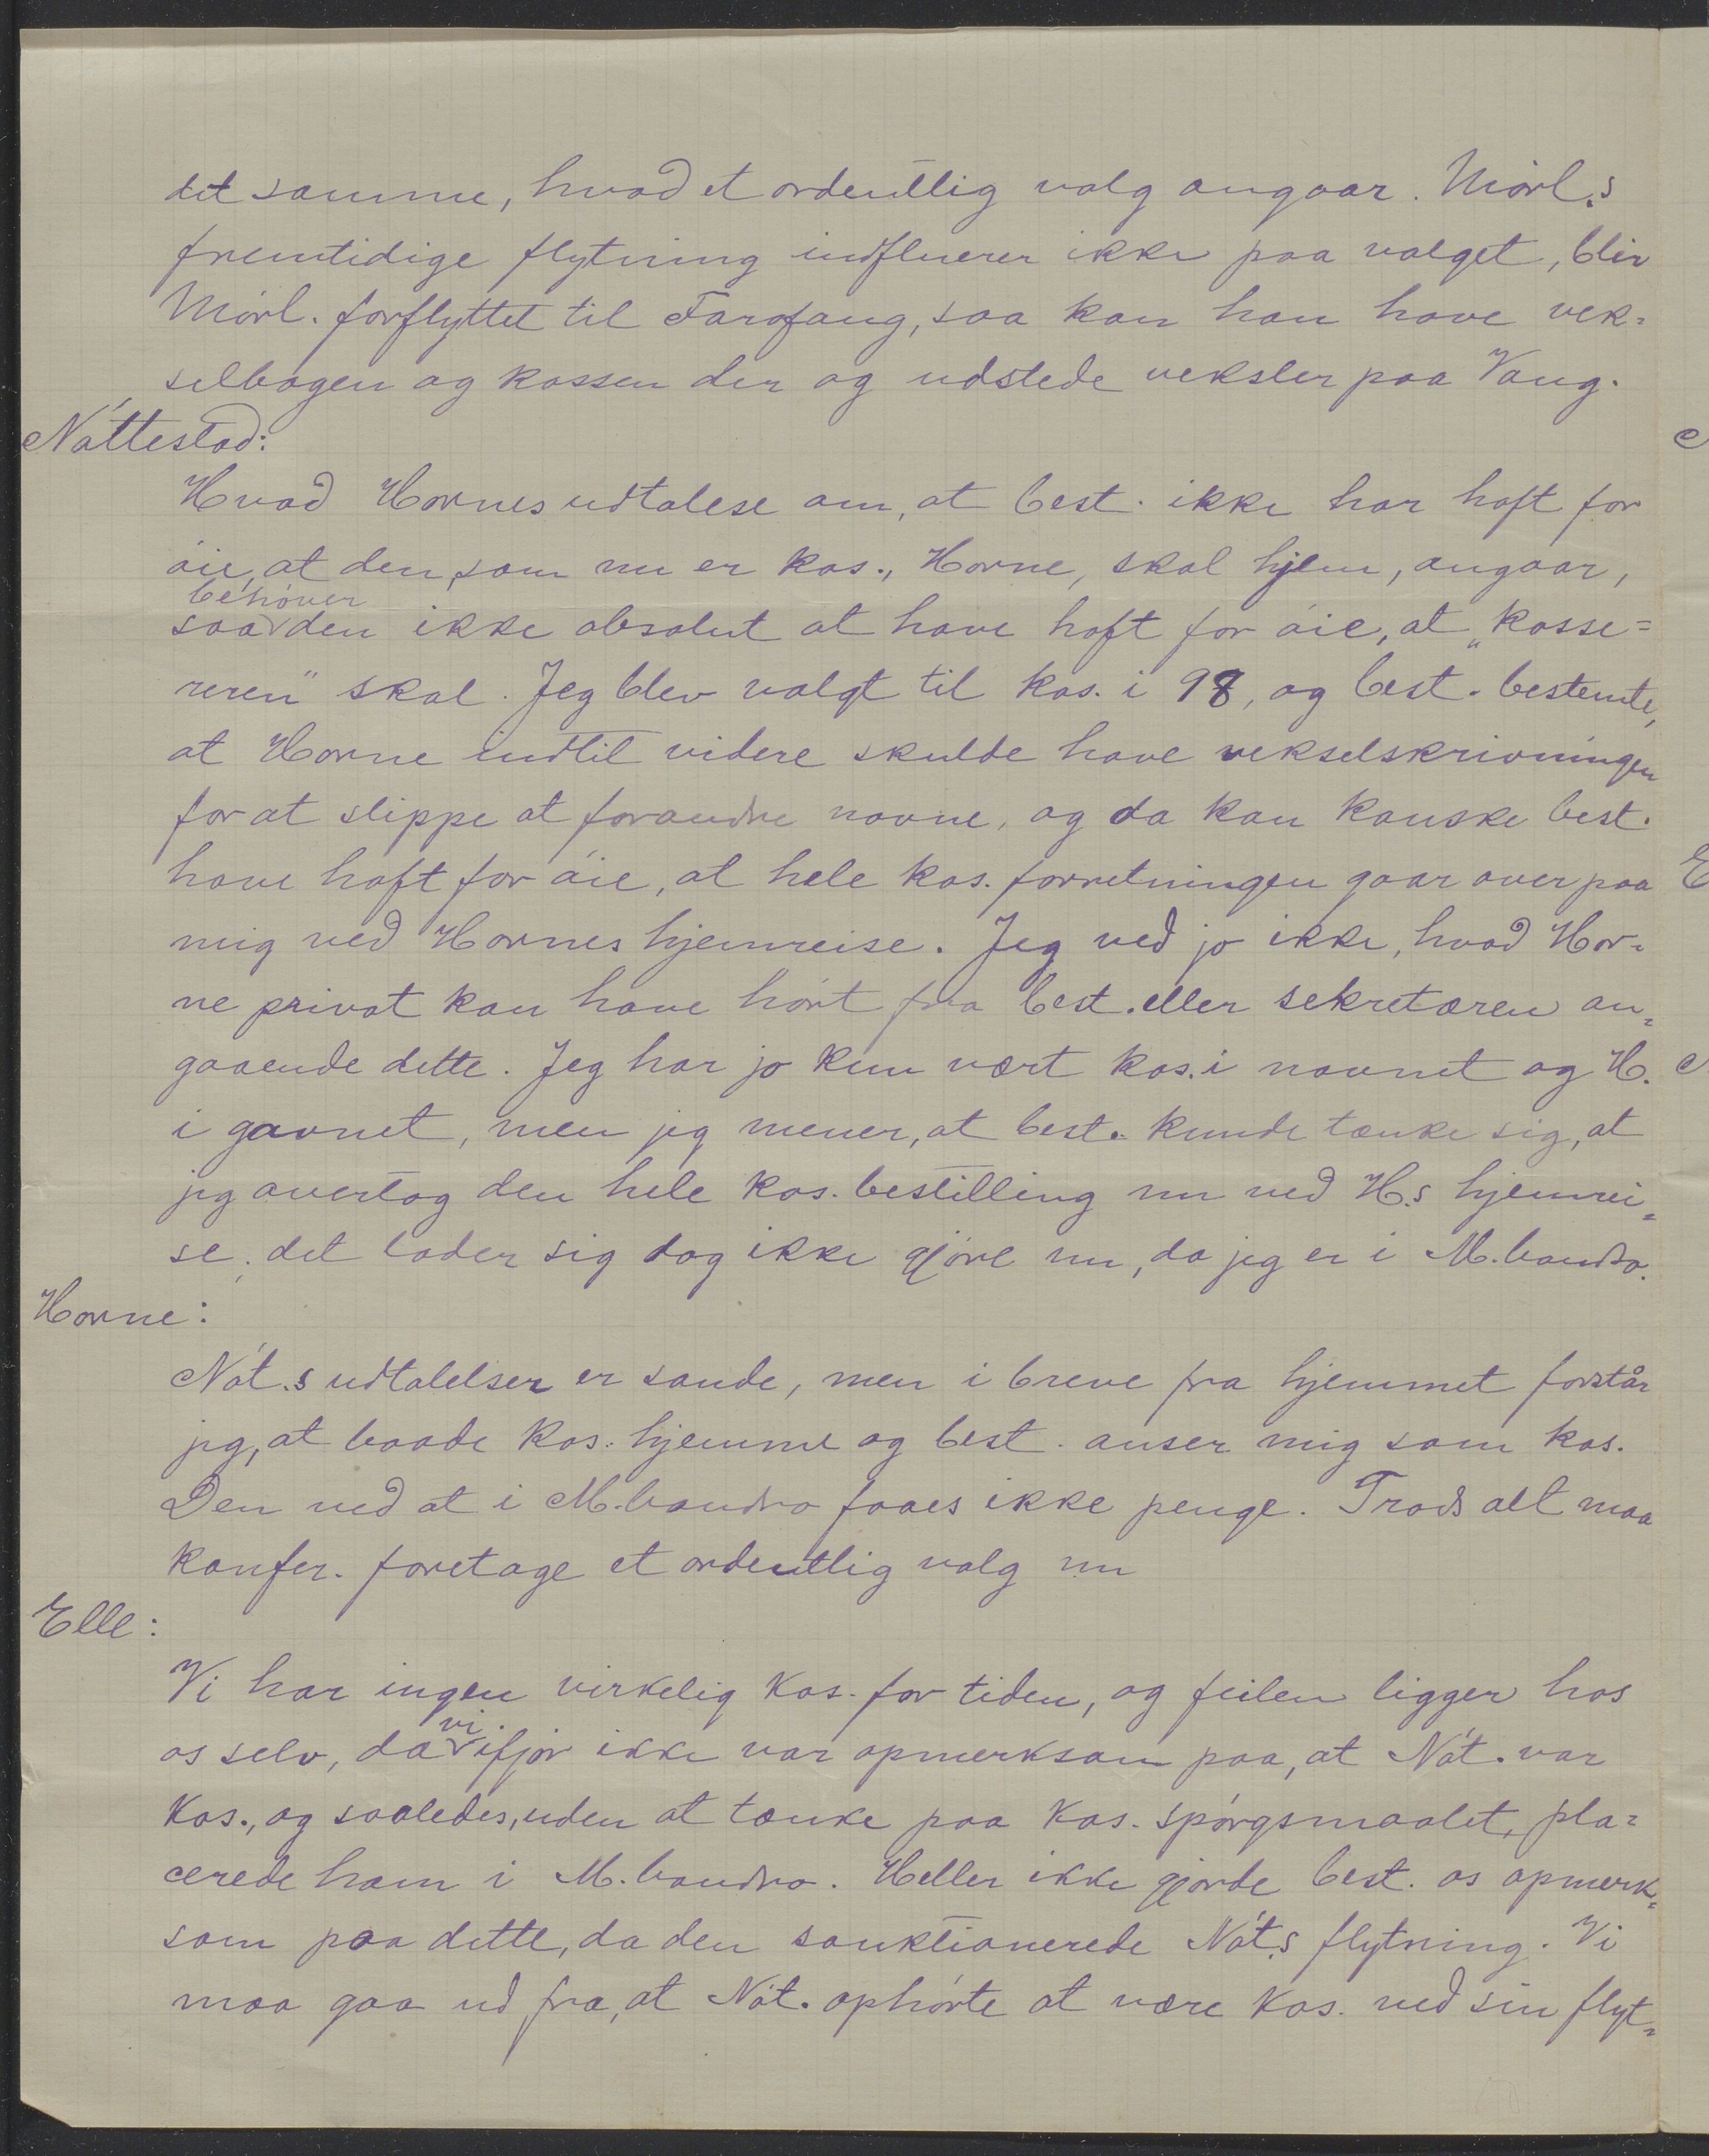 det samme, hvad et ordentlig valg angaar. Mörl.s
fremtidige flytning influerer ikke paa valget, blir
Mörl. forflyttet til Farafang, saa kan han have vek=
selbogen og kassen der og udstede veksler paa Vang.
Nöttestad:
Hvad Hornes udtalese om, at best. ikke har haft for
öie, at den, som nu er kas., Horne, skal hjem, angaar,
behöver
saa den ikke absolut at have haft for öie, at "kasse=
reren" skal. Jeg blev valgt til kas. i 98, og best. bestemte,
at Horne indtil videre skulde have vekselskrivningen
for at slippe at forandre navne, og da kan kanske best.
have haft for öie, at hele kas. forretningen gaar over paa
mig ved Hornes hjemreise. Jeg ved jo ikke, hvad Hor=
ne privat kan have hört fra best. eller sekretæren an=
gaaende dette. Jeg har jo kun vært kas. i navnet og H.
i gavnet, men jeg mener, at best. kunde tænke sig, at
jeg overtog den hele kas. bestilling nu ved H.s hjemrei=
se; det lader sig dog ikke gjöre nu, da jeg er i M.bandro.
Horne:
Nöt.s udtalelser er sande, men i breve fra hjemmet forstår
jeg, at baade kas. hjemme og best. anser mig som kas.
Den ved at i M.bandro faaes ikke penge. Trods alt maa
konfer. foretage et ordentlig valg nu
Elle:
Vi har ingen virkelig kas. for tiden, og feilen ligger hos
vi
os selv, da ifjor ikke var opmerksom paa, at Nöt. var
kas., og saaledes, uden at tænke paa kas. spörgsmaalet, pla=
cerede ham i M.bandro. Heller ikke gjorde best. os opmerk=
som paa dette, da den sanktionerede Nöt.s flytning. Vi
maa gaa ud fra, at Nöt. ophörte at være kas. ved sin flyt=